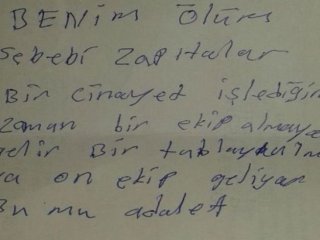 BENİM ÖLÜM
Sebebi Zaptlalar
Bir Cinayet işlediğin
zaman bir ekip almaya
gelir Bir
on ekip geliyor
Bu mu adalet